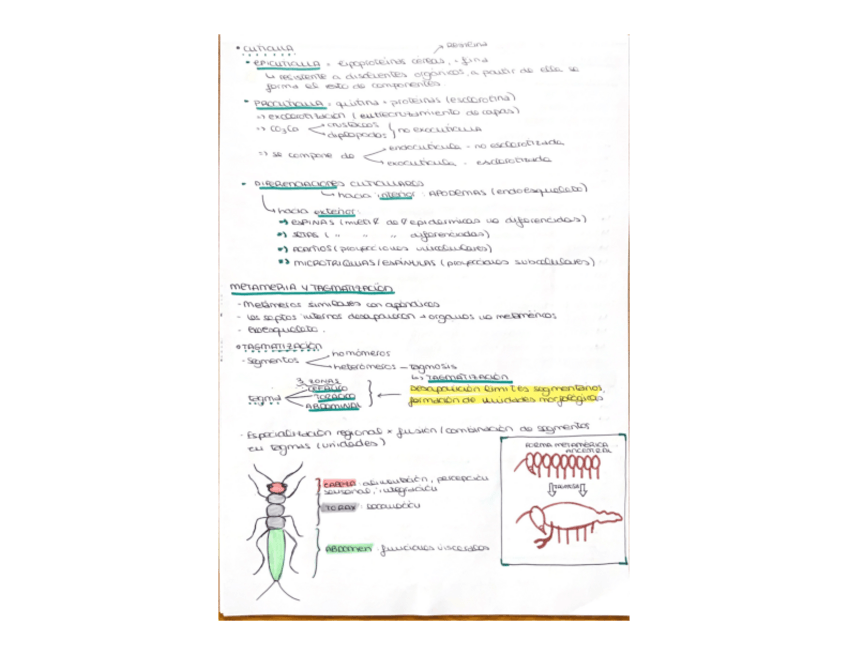 • CUTÍCULA
• EPICUTÍCULA = lipoproteínas céreas, + fina
↳ resistente a disolventes orgánicos, a partir de ella se
forma el resto de componentes.
• PROCUTÍCULA = quitina + proteínas (esclerotina)
⇒ esclerotización (entrecruzamiento de capas)
⇒ CO3Ca crustáceos
diplópodos no exocutícula
⇒ se compone de endocutícula - no esclerotizada
exocutícula - esclerotizada
• DIFERENCIACIONES CUTICULARES
↳ hacia interior: APODEMAS (endoesqueleto)
↳ hacia exterior:
ESPINAS ( de epidérmicas no diferenciadas)
SETAS ( " " " diferenciadas)
ACANTIOS (proyecciones unicelulares)
MICROTRIQUIAS/ESPÍNULAS (proyecciones subcelulares)
METAMERIA Y TAGMATIZACIÓN
- Metámeros similares con apéndices
- los septos internos desaparecen → órganos no metaméricos
- Exoesqueleto.
• TAGMATIZACIÓN
- Segmentos homómeros
heterómeros - tagmosis
↳ TAGMATIZACIÓN
3 ZONAS
CEFÁLICO
tagma TORÁCICO
ABDOMINAL
Desaparición límites segmentarios,
formación de unidades morfológicas
- Especialización regional x fusión/combinación de segmentos
en tagmas (unidades)
FORMA METAMÉRICA
ANCESTRAL
TAGMOSIS
CABEZA: alimentación, percepción
sensorial, integración
TORAX: locomoción
ABDOMEN: funciones viscerales